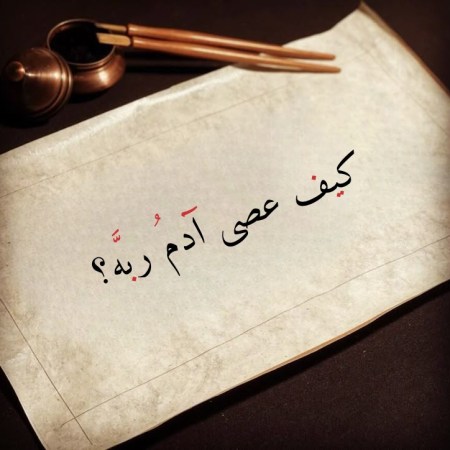 كيف عصى آدمُ ربهَّ؟